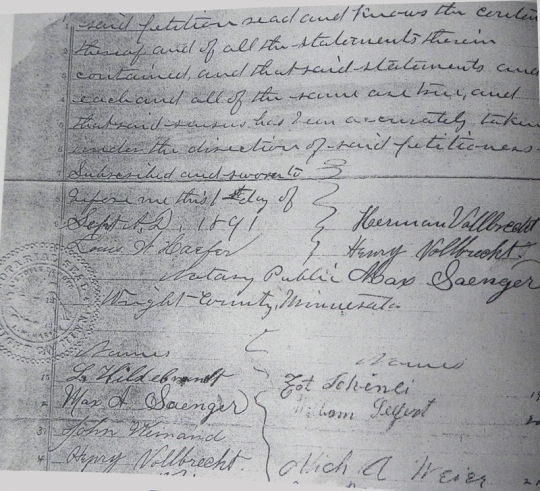 said petition read and knows the conten
thereof and of all the statements therein
contained, and that said statements and
each and all of the same are true, and
that said census has been accurately taken
under the direction of said petitioners.
Subscribed and sworn to
before me this 1st day of
Sept A.D., 1891
Herman Vollbrecht
Louis W
Henry Vollbrecht.
Notary Public
Max Saenger
Wright County, Minnesota
Names
Names
L Hildebrandt
Max A Saenger
John Weinand
Henry Vollbrecht.
Mich A Weier